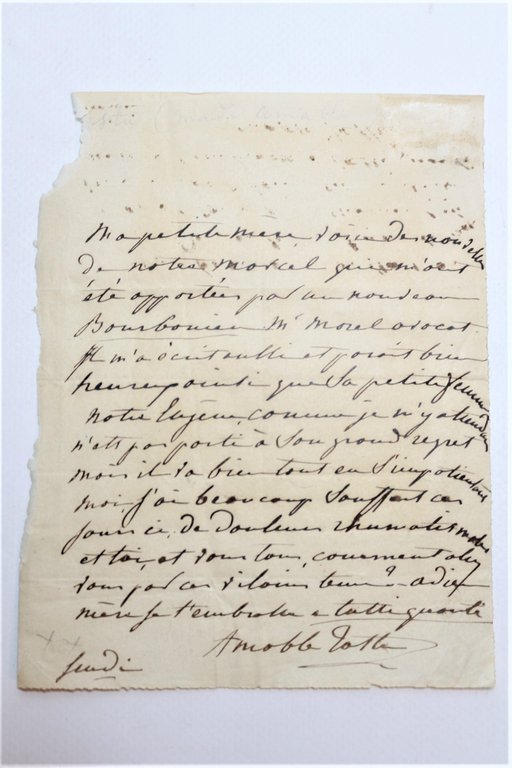 Ma petite mère, voici des nouvelles
de notre Marcel qui m'ont
été apportées par un nouveau
Bourbonien Mr Morel avocat.
Il m'a écrit aussi et paraît bien
heureux ainsi que sa petite femme
notre Eugène, comme je m'y attendais
n'est pas parti à son grand regret
mais il va bien tout en s'impatientant
moi j'ai beaucoup souffert ces
jours ci, de douleurs rhumatismales
et toi, et vous tous, comment allez
vous par ces vilains temps ? adieu
mère je t'embrasse e tutti quanti
Amable Tastu
lundi